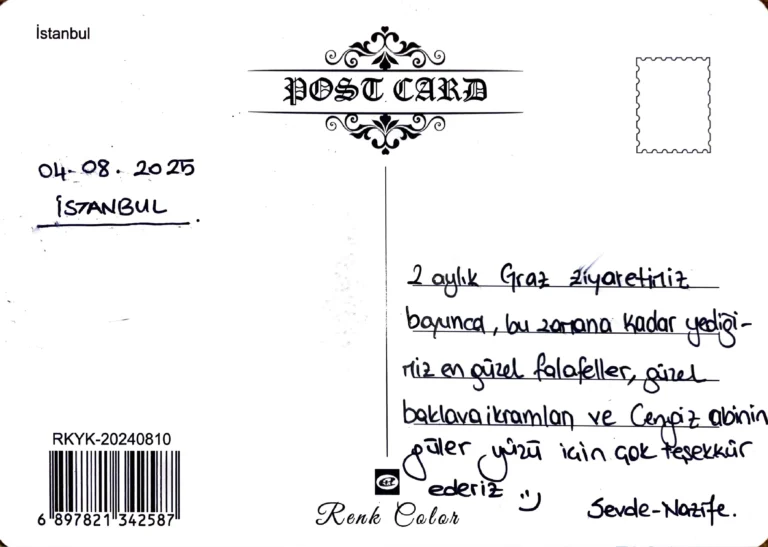 İstanbul
POST CARD
04-08-2025
İSTANBUL
2 aylık Graz ziyaretimiz
boyunca, bu zamana kadar yediği-
miz en güzel falafeller, güzel
baklava ikramları ve Cengiz abinin
güler yüzü için çok teşekkür
ederiz :)
Sevde-Nazife.
RKYK-20240810
6 897821 342587
Renk Color